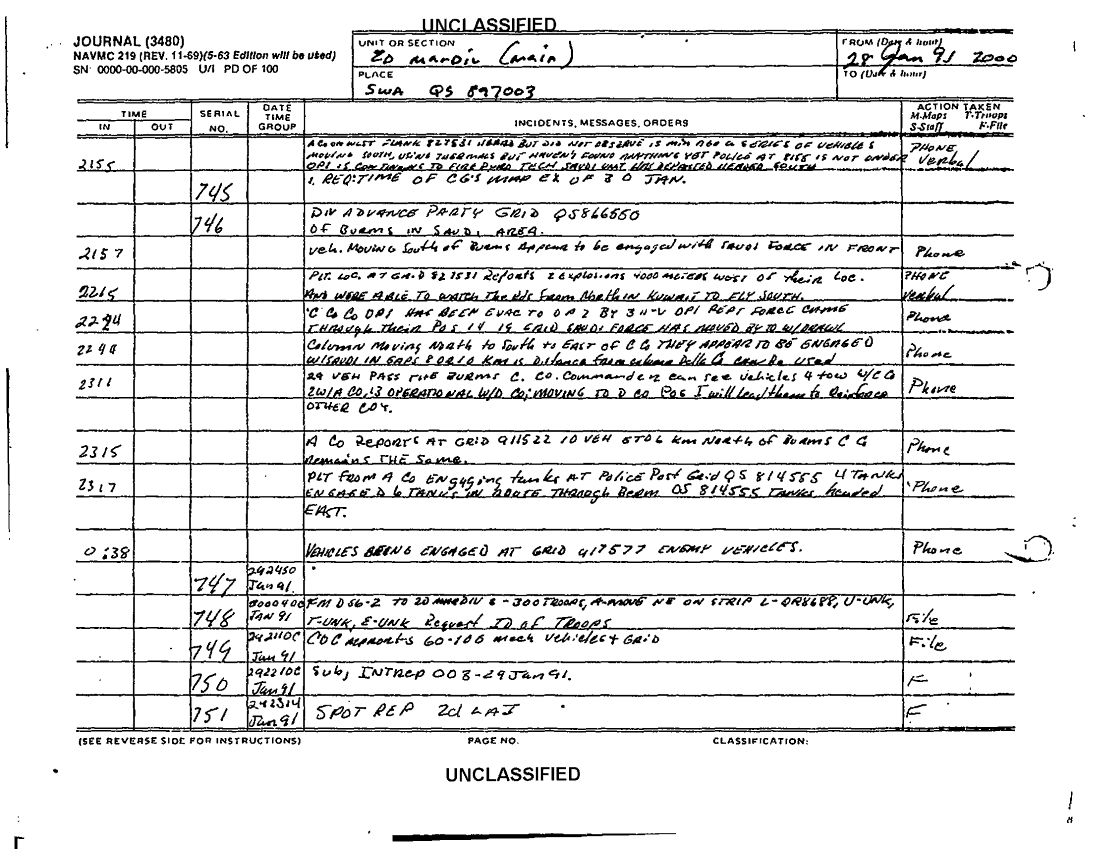 UNCLASSIFIED
JOURNAL (3480)
NAVMC 219 (REV. 11-69)(5-63 Edition will be used)
SN: 0000-00-000-5805 U/I PD OF 100
UNIT OR SECTION
2D MARDIV (main)
FROM (Date & hour)
28 Jan 91 2000
PLACE
SWA QS 897003
TO (Date & hour)
TIME
IN OUT
SERIAL NO.
DATE TIME GROUP
INCIDENTS, MESSAGES, ORDERS
ACTION TAKEN
M-Maps T-Troops
S-Staff F-File
A Co ON WEST FLANK 827531 HEARD BUT DID NOT OBSERVE 15 MIN AGO A SERIES OF VEHICLES PHONE
2155 MOVING SOUTH, USING THERMALS BUT HAVEN'T FOUND ANYTHING YET POLICE AT IS NOT UNDER Verbal
OP1 IS CONTINUING TO FIRE SAUDI UNIT HAS DEPARTED HEADED SOUTH
745 1. REQ: TIME OF CG'S MAP EX OF 30 JAN.
746 DIV ADVANCE PARTY GRID QS866550
OF BURMS IN SAUDI AREA.
2157 veh. Moving South of Burms Appear to be engaged with SAUDI FORCE IN FRONT Phone
2215 PLT. LOC. AT GRID 827531 Reports 2 Explosions 4000 METERS WEST OF Their Loc. PHONE
AND WERE ABLE TO WATCH The Rds From North in KUWAIT TO FLY SOUTH. Verbal
2244 'C Co OP1 HAS BEEN EVAC TO OP2 BY OP1 REPS FORCE CAME Phone
THROUGH Their POS 14 19 GRID SAUDI FORCE HAS MOVED BY TO W/DRAWL
2248 Column Moving North to South to EAST OF CG THEY APPEAR TO BE ENGAGED Phone
W/SAUDI IN GAPS 8 OR 10 Km is Distance from column Delta Co can be used
2311 29 VEH PASS THE BURMS C. CO. Commander can see vehicles 4 tow W/C Co Phone
2W/A CO, 3 OPERATIONAL W/D Co, MOVING TO D CO POS I will lead them to Reinforce
OTHER COY.
2315 A Co REPORTS AT GRID 911522 10 VEH 5 TO 6 Km North of Burms C Co Phone
Remains THE Same.
2317 PLT FROM A Co ENGAGING tanks AT Police Post Grid QS 814555 4 TANKS Phone
ENGAGED 6 TANKS IN ROUTE THROUGH Berm QS 814555 TANKS headed
EAST.
0:38 VEHICLES BEING ENGAGED AT GRID 917577 ENEMY VEHICLES. Phone
747 292450 Jan 91
748 300040C JAN 91 FM D S6-2 TO 2D MARDIV S - 300 TROOPS, A-MOVE NE ON STRIP L-QR8688, U-UNK, File
T-UNK, E-UNK Request ID of TROOPS
749 292110C Jan 91 COC reports 60-100 mech vehicles + GRID File
750 292210C Jan 91 Sub, INTREP 008-29 Jan 91. F
751 292314 Jan 91 SPOT REP 2d LAI F
(SEE REVERSE SIDE FOR INSTRUCTIONS) PAGE NO. CLASSIFICATION:
UNCLASSIFIED